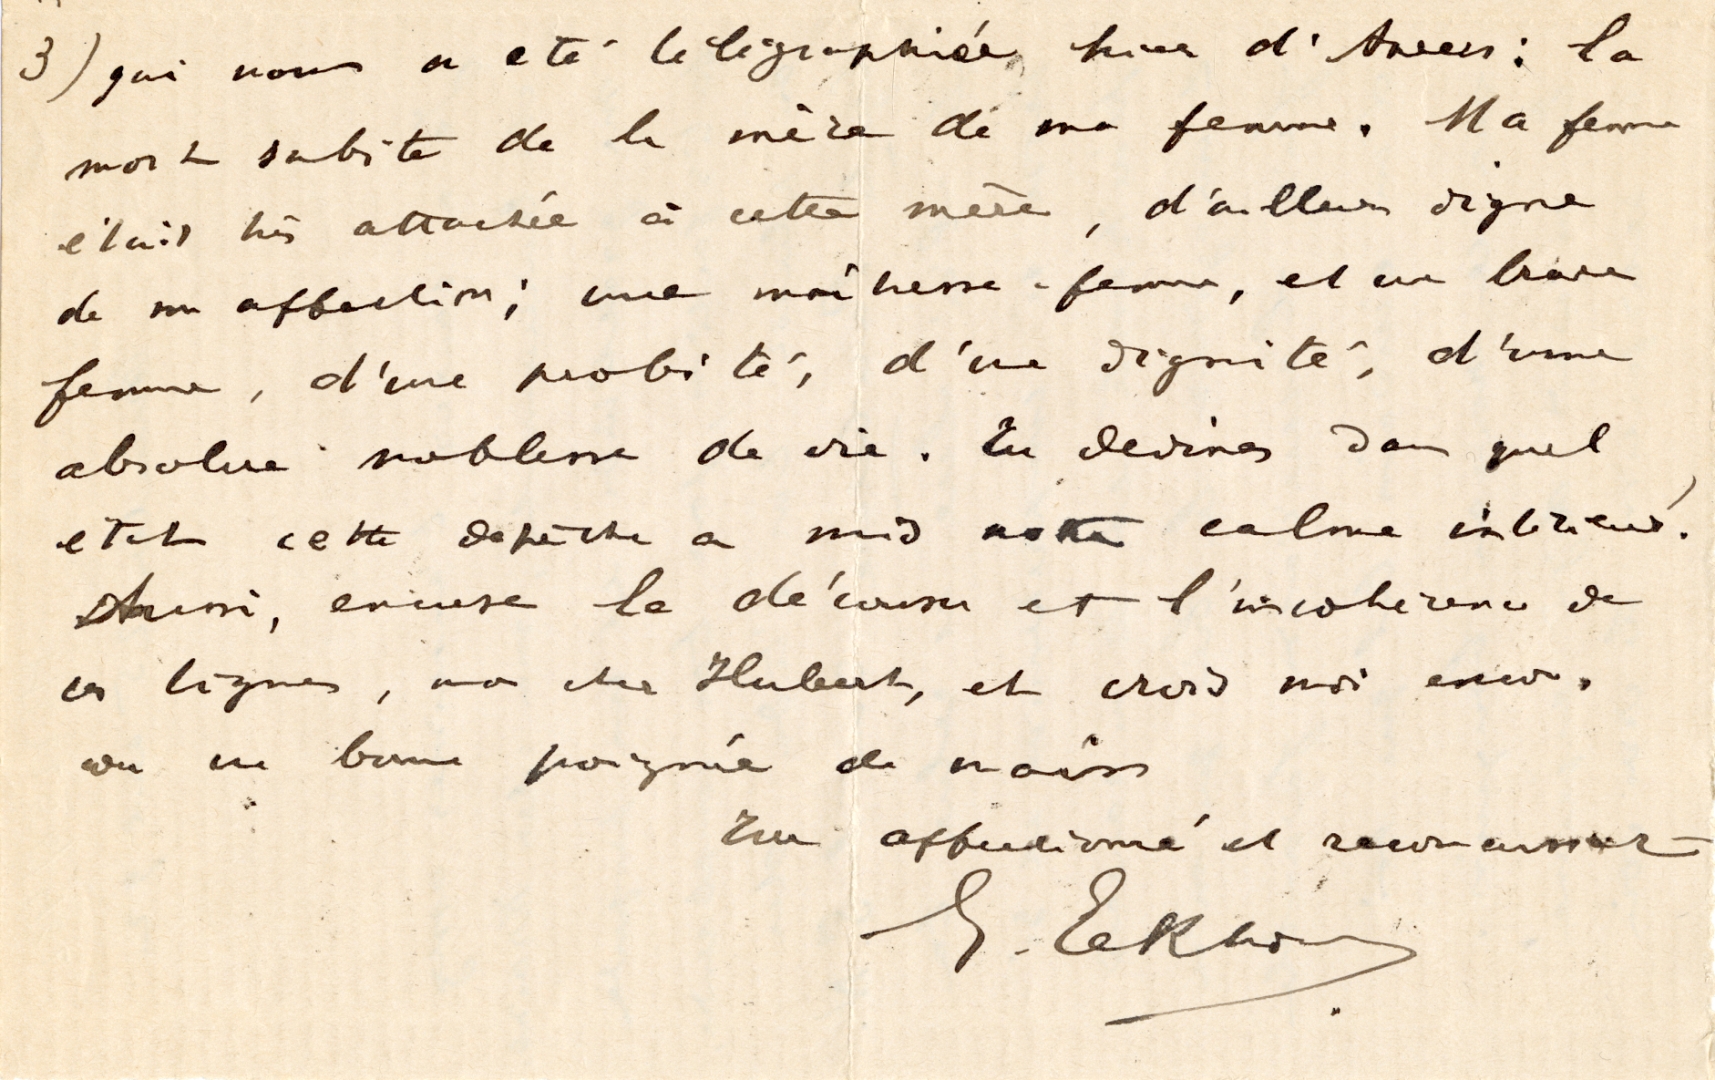 3) qui nous a été télégraphiée hier d'Anvers : la
mort subite de la mère de ma femme. Ma femme
était très attachée à cette mère, d'ailleurs digne
de son affection ; une maîtresse-femme, et une brave
femme, d'une probité, d'une dignité, d'une
absolue noblesse de vie. Tu devines dans quel
état cette dépêche a mis notre calme intérieur.
Aussi, excuse le décousu et l'incohérence de
ces lignes, mon cher Hubert, et crois moi encore.
avec une bonne poignée de mains
Ton affectionné et reconnaissant
G. Eekhoud